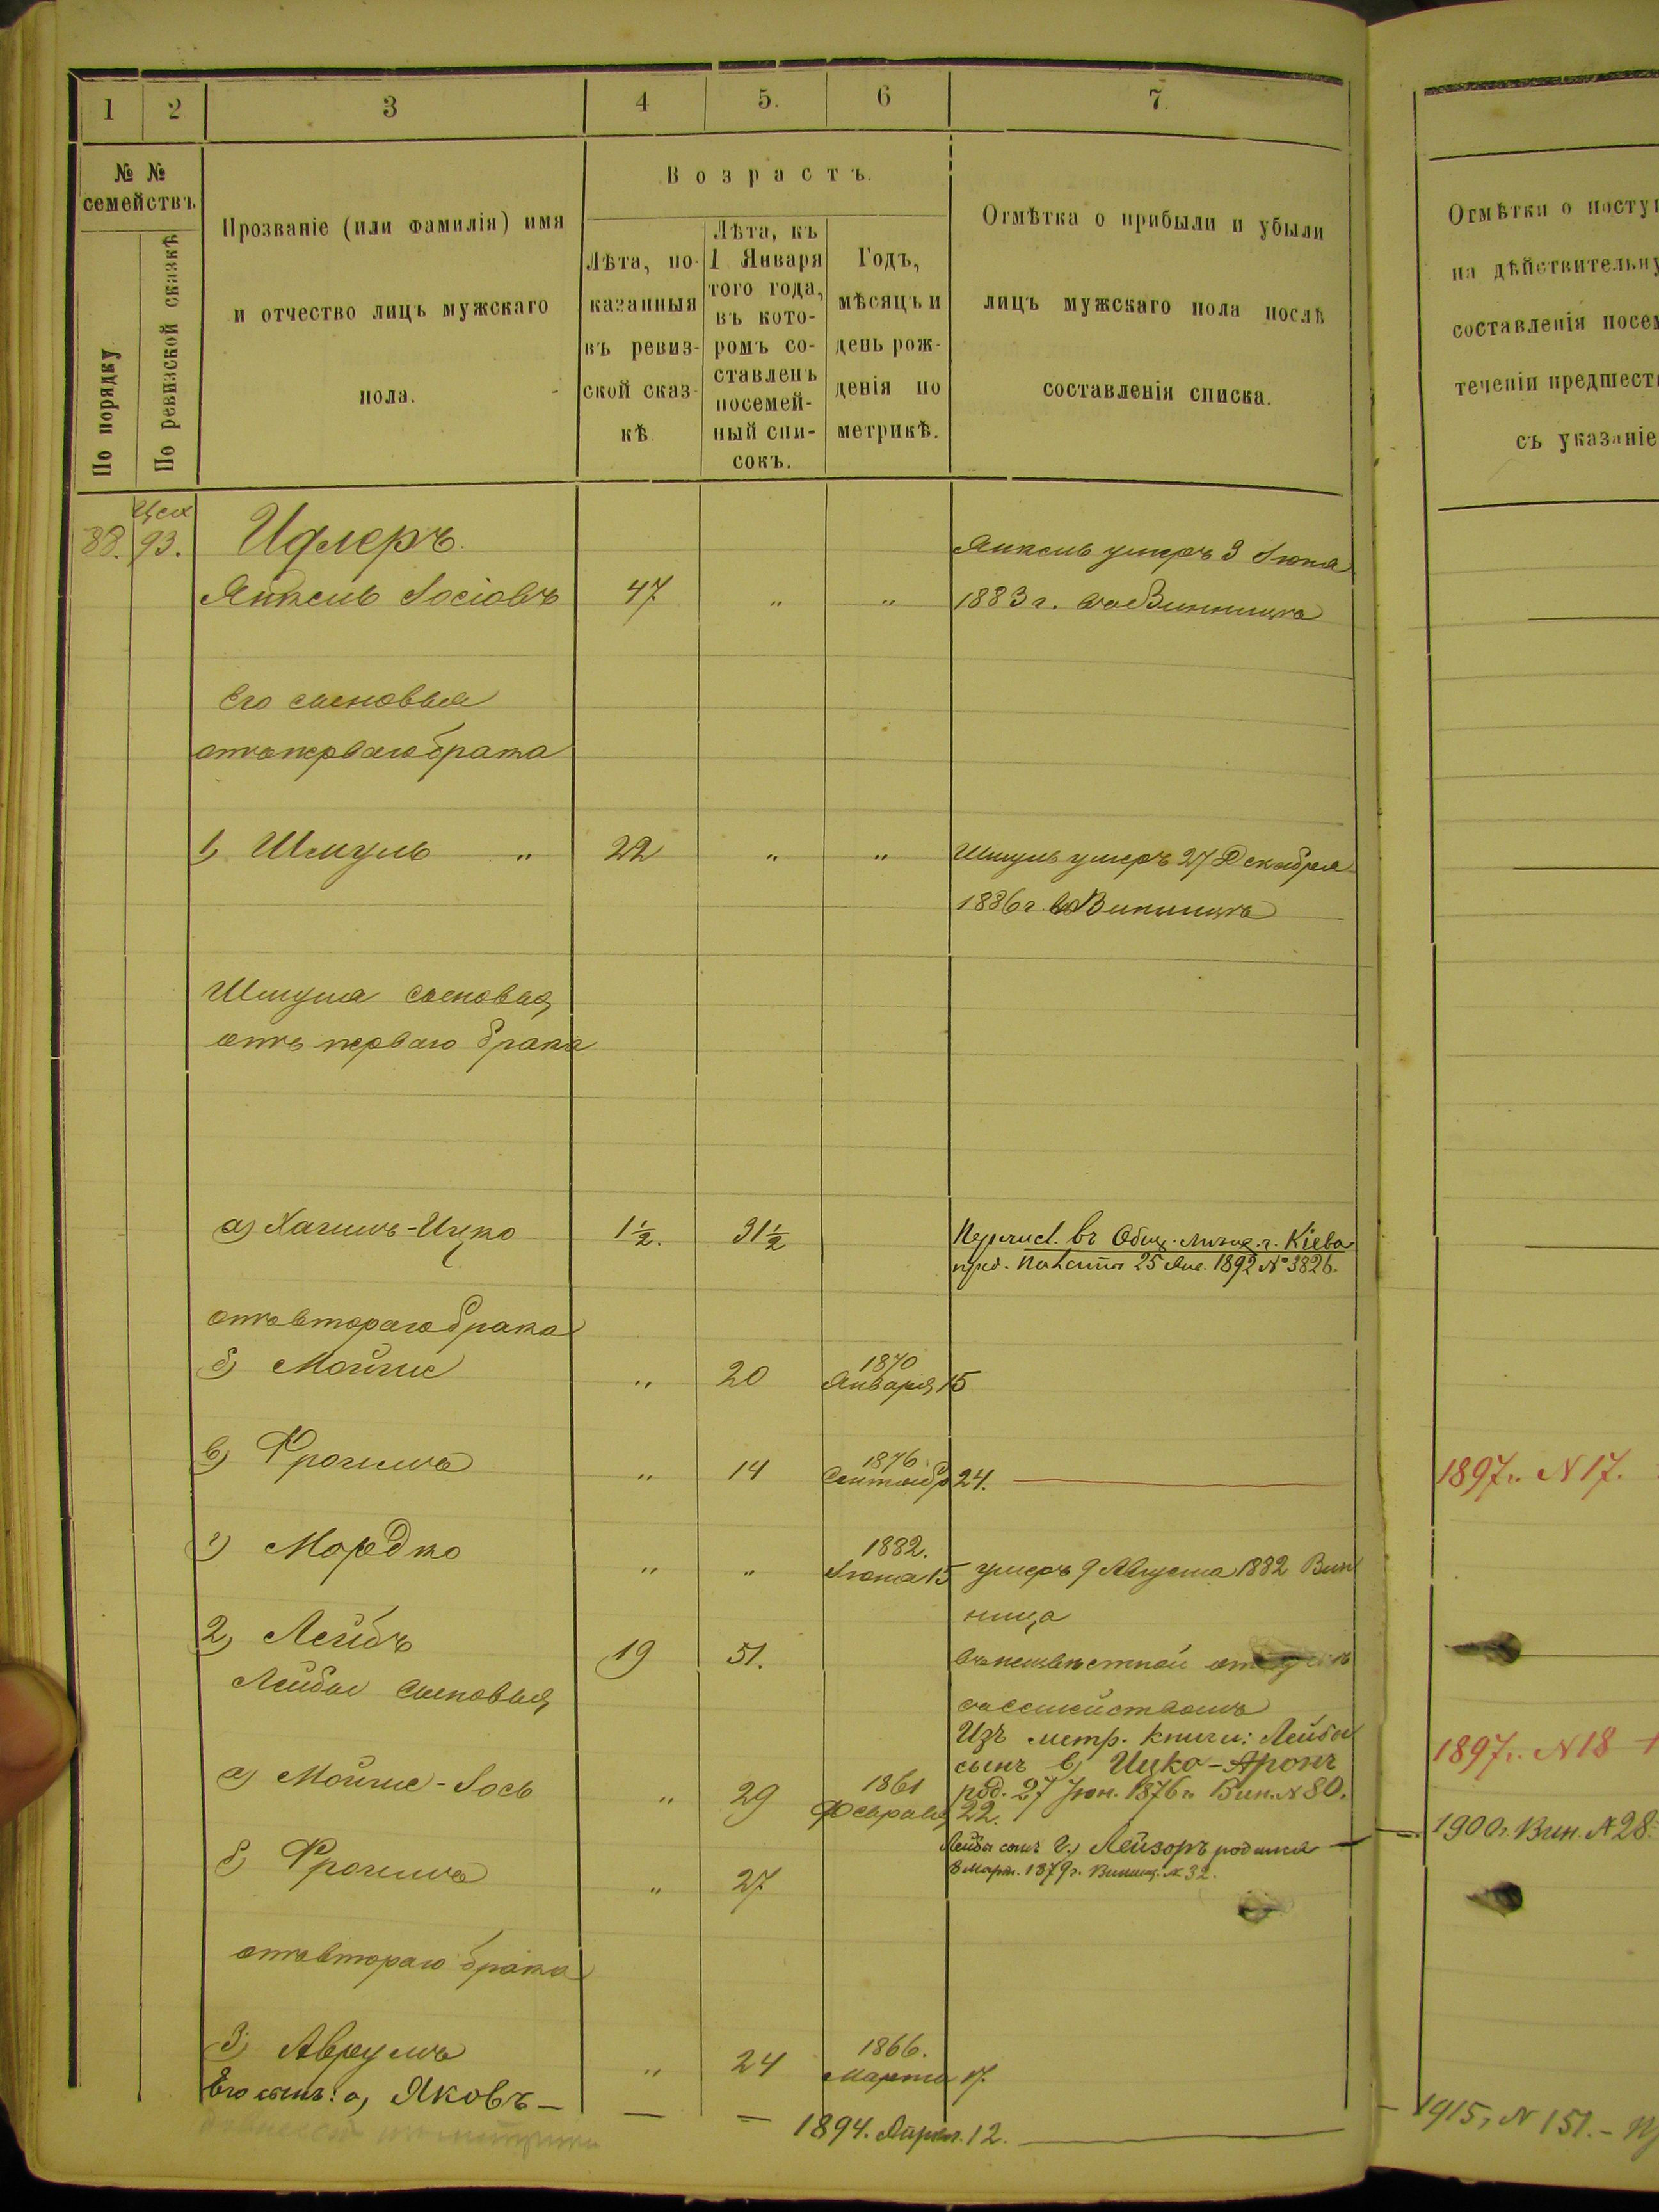 1 2 3 4 5. 6 7.
№ №
семействъ
По порядку
По ревизской сказкѣ
Прозваніе (или фамилія) имя
и отчество лицъ мужскаго
пола.
Возрастъ.
Лѣта, по-
казанныя
въ ревиз-
ской сказ-
кѣ
Лѣта, къ
1 Января
того года,
въ кото-
ромъ со-
ставленъ
посемей-
ный спи-
сокъ.
Годъ,
мѣсяцъ и
день рож-
денія по
метрикѣ.
Отмѣтка о прибыли и убыли
лицъ мужскаго пола послѣ
составленія списка.
Отмѣтки о поступ
на дѣйствительну
составленія посем
теченіи предшеств
съ указаніе
Цех
88. 93. Идлеръ.
Янкель умеръ 3 Іюня
Янкель Іосіовъ 47 " " 1883 г. въ Винница
Его сыновья
отъ перваго брака
1) Шмуль " 22 " " Шмуль умеръ 27 Декабря
1886 г. въ Винница
Шмуля сыновья
отъ перваго брака
а) Хаимъ-Ицко 1½. 31½ Перечисл. въ Общ. г. Кіева
пред. Палаты 25 Янв. 1892 № 3826.
отъ втораго брака
б) Мойше " 20 1870 Января 15
в) Фроимъ " 14 1876 Сентябр 24. 1897 г. N 17.
г) Мордко " " 1882. Іюня 15 умеръ 9 Августа 1882 Вин
ница
2) Лейбъ 19 51. въ неизвѣстной
Лейбы сыновья
съ семействомъ
Изъ метр. книги: Лейбы
сынъ в) Ицко-Аронъ
род. 27 Іюн. 1876 г. Вин. № 80.
1897 г. N 18
а) Мойше-Іось " 29 1861 Февраля 22.
Лейбы сынъ г.) Лейзоръ родился
8 Март. 1879 г. Винниц. № 32.
1900 г. Вин. № 28.
б) Фроимъ " 27
отъ втораго брака
3) Аврумъ " 24 1866. Марта 17.
Его сынъ: а) Яковъ — — — 1894. Апрел. 12.
1915 г. N 151.-